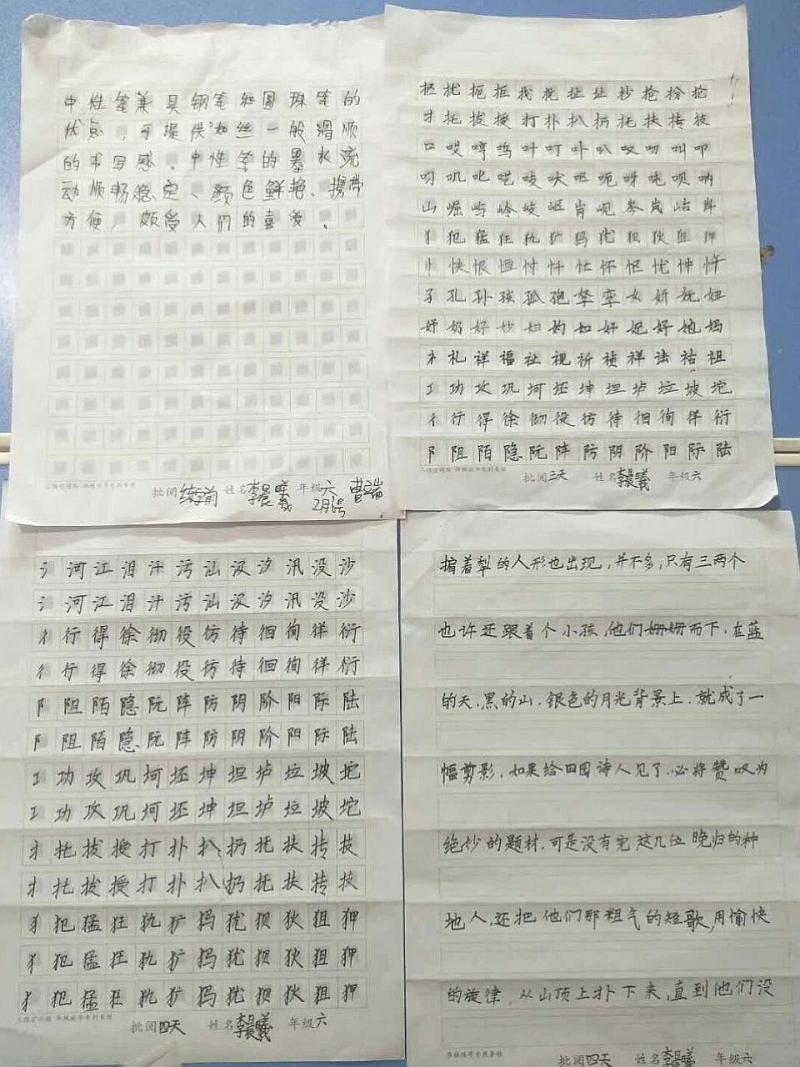 中性笔兼具钢笔和圆珠笔的
优点，可提供如丝一般滑顺
的书写感。中性笔的墨水流
动顺畅稳定、颜色鲜艳、携带
方便，颇受人们的喜爱。
批阅 练前 姓名 李晨曦 年级 六
扌 托 拔 授 打 扑 扒 扔 托 扶 抟 技
口 哎 哼 呜 叶 叮 卟 叭 叹 叻 叫 叩
山 崛 屿 岭 岐 岖 岿 岘 岑 岚 岵 岸
犭 犯 猛 狂 犰 犷 犸 犹 狈 狄 狙 狎
忄 快 恨 恒 忖 忏 忙 怀 怄 忧 忡 忤
孑 孔 孙 孩 孤 孢 孥 孪 女 妍 妩 妞
礻 礼 祥 福 祉 视 祈 祯 祥 祛 祜 祖
工 功 攻 巩 坷 坯 坤 坦 垆 垃 坡 坨
彳 行 得 徐 彻 役 彷 待 徊 徇 徉 衍
阝 阻 陌 隐 阮 阵 防 阴 阶 阳 际 陆
批阅 三天 姓名 李晨曦 年级 六
氵 河 江 泪 汗 污 汕 汲 汐 汛 没 沙
氵 河 江 泪 汗 污 汕 汲 汐 汛 没 沙
彳 行 得 徐 彻 役 彷 待 徊 徇 徉 衍
彳 行 得 徐 彻 役 彷 待 徊 徇 徉 衍
阝 阻 陌 隐 阮 阵 防 阴 阶 阳 际 陆
阝 阻 陌 隐 阮 阵 防 阴 阶 阳 际 陆
工 功 攻 巩 坷 坯 坤 坦 垆 垃 坡 坨
工 功 攻 巩 坷 坯 坤 坦 垆 垃 坡 坨
扌 托 拔 授 打 扑 扒 扔 托 扶 抟 技
扌 托 拔 授 打 扑 扒 扔 托 扶 抟 技
犭 犯 猛 狂 犰 犷 犸 犹 狈 狄 狙 狎
犭 犯 猛 狂 犰 犷 犸 犹 狈 狄 狙 狎
犭 犯 猛 狂 犰 犷 犸 犹 狈 狄 狙 狎
批阅 四天 姓名 李晨曦 年级 六
掮着犁的人形也出现，并不多，只有三两个
也许还跟着个小孩，他们姗姗而下，在蓝
的天，黑的山，银色的月光背景上，就成了一
幅剪影，如果给田园诗人见了，必将赞叹为
绝妙的题材，可是没有完，这几位晚归的种
地人，还把他们那粗气的短歌，用愉快
的旋律，从山顶上扑下来，直到他们没
批阅 四天 姓名 李晨曦 年级 六